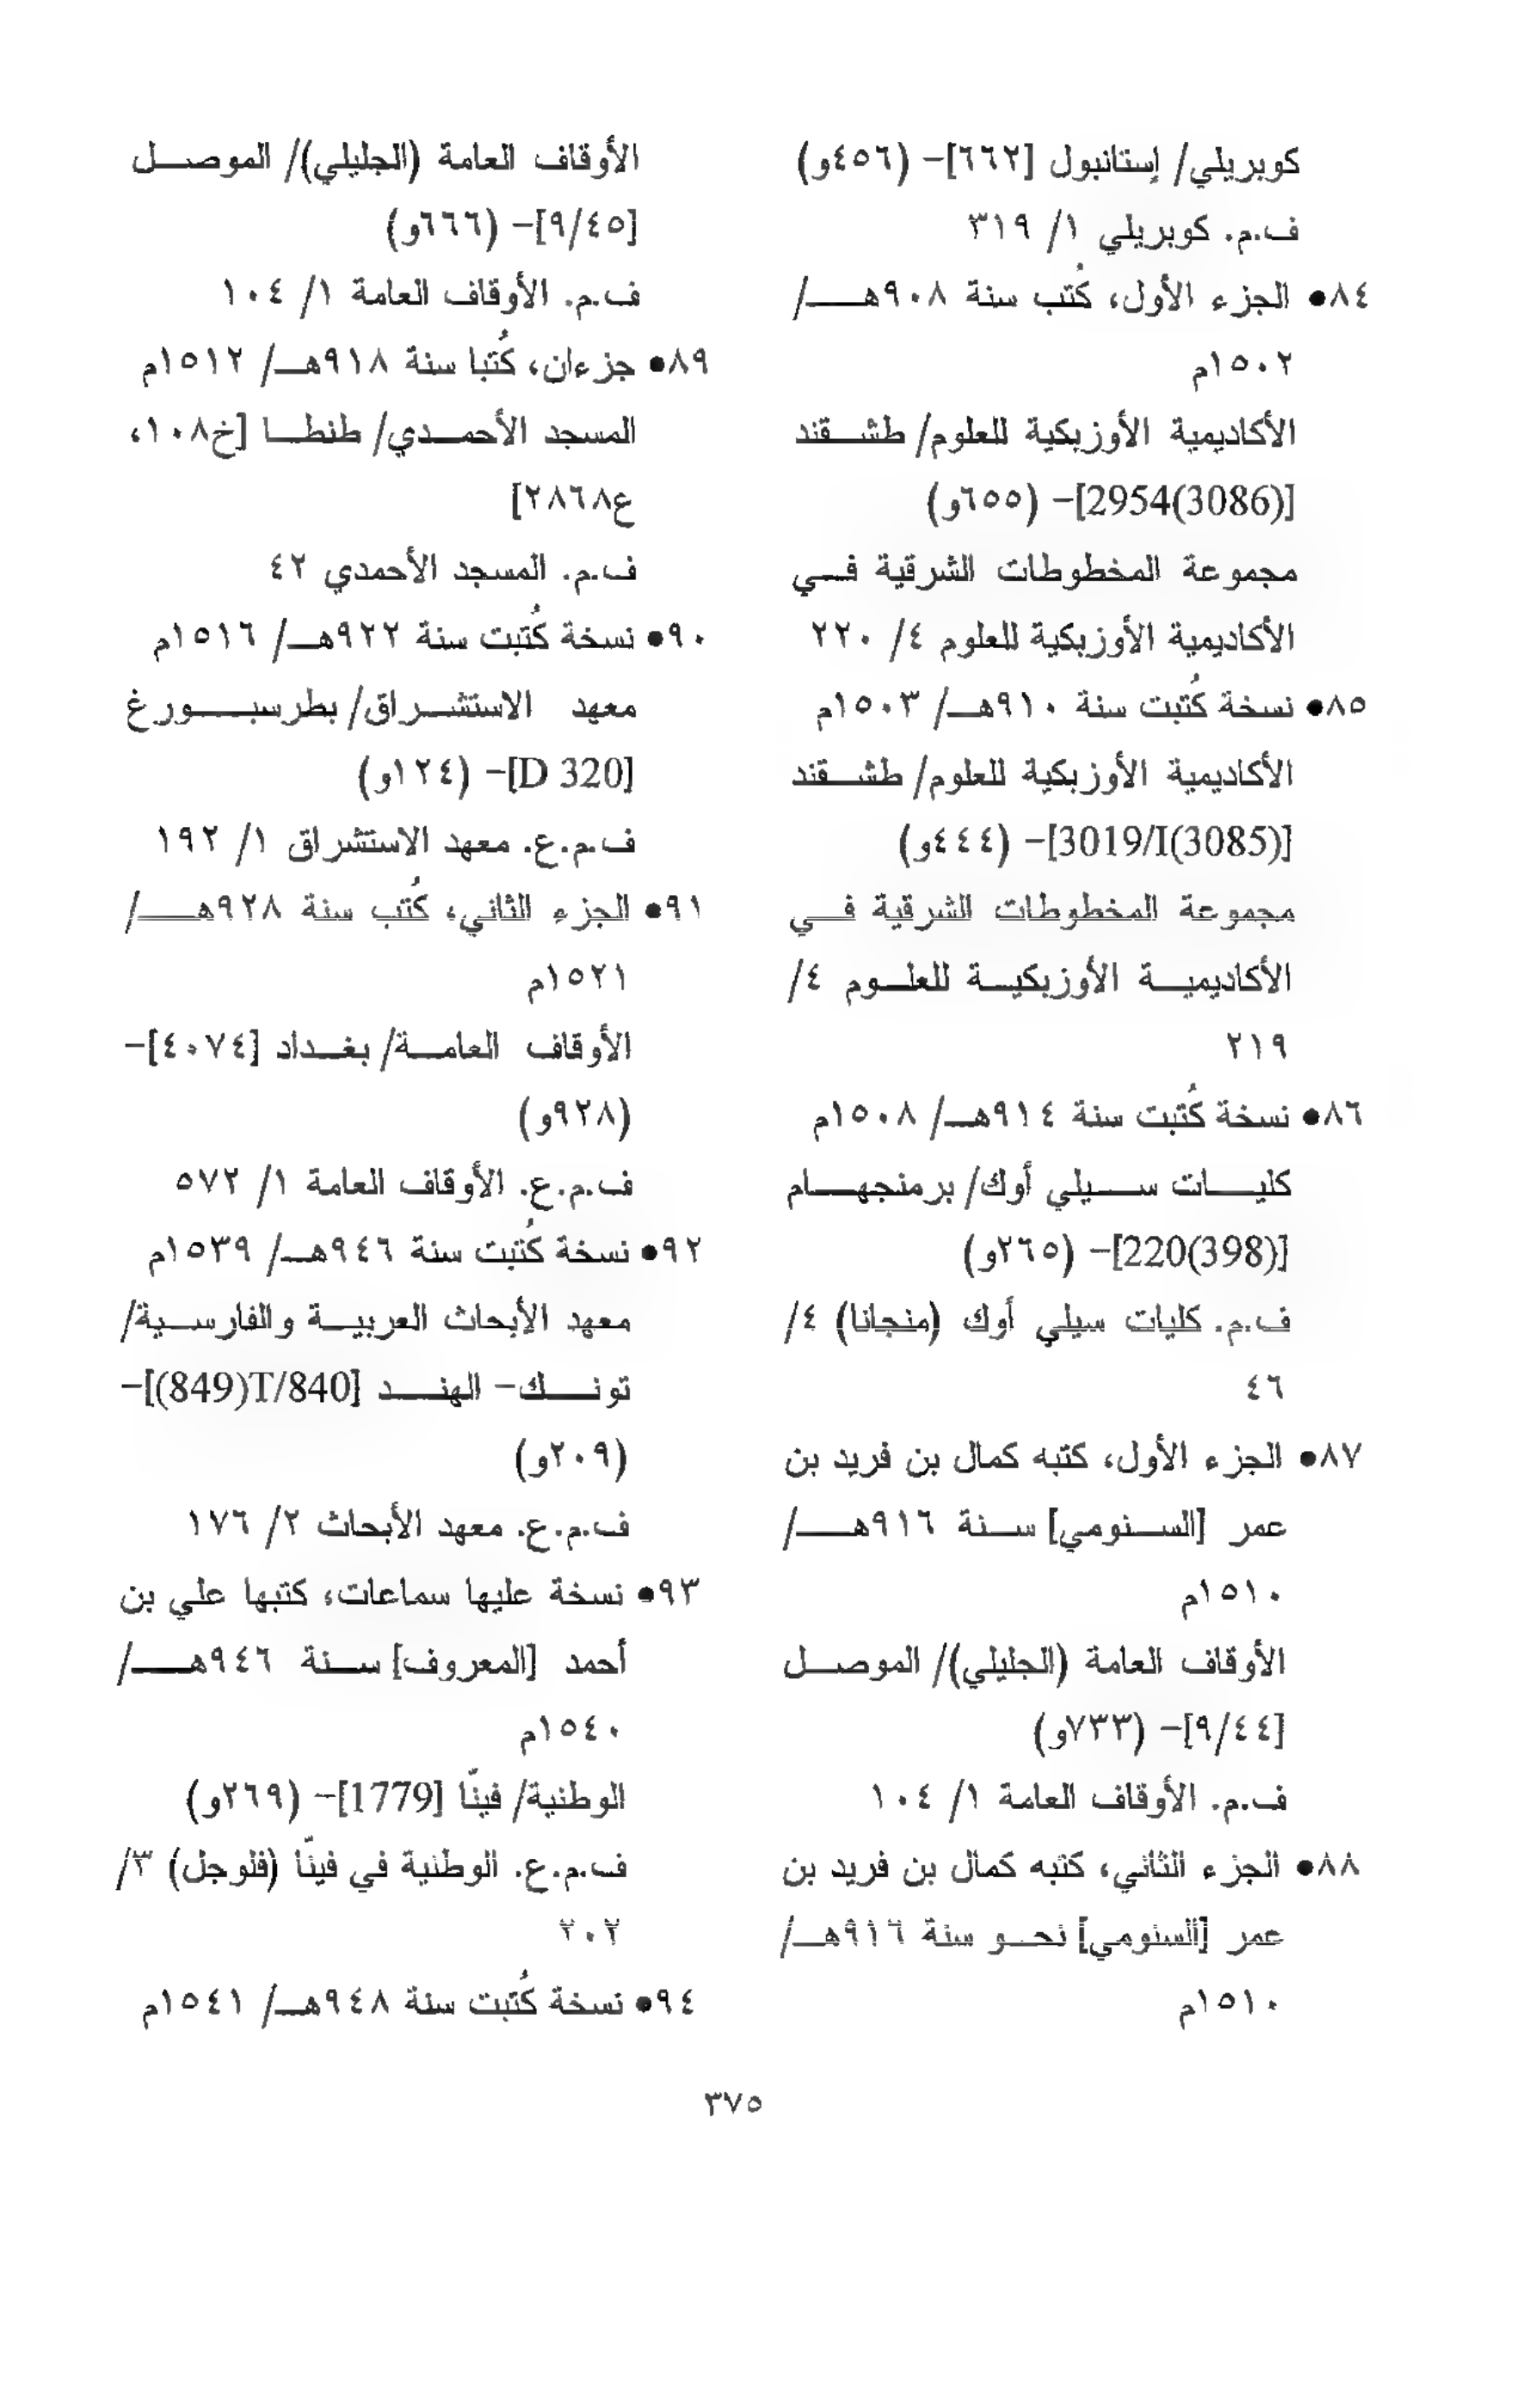 كوبريلي/ إستانبول [٦٦٢]- (٤٥٦و)
ف.م. كوبريلي ١/ ٣١٩
٨٤● الجزء الأول، كُتب سنة ٩٠٨هـ/
١٥٠٢م
الأكاديمية الأوزبكية للعلوم/ طشقند
[2954(3086)]- (٦٥٥و)
مجموعة المخطوطات الشرقية في
الأكاديمية الأوزبكية للعلوم ٤/ ٢٢٠
٨٥● نسخة كُتبت سنة ٩١٠هـ/ ١٥٠٣م
الأكاديمية الأوزبكية للعلوم/ طشقند
[3019/I(3085)]- (٤٤٤و)
مجموعة المخطوطات الشرقية في
الأكاديمية الأوزبكية للعلوم ٤/
٢١٩
٨٦● نسخة كُتبت سنة ٩١٤هـ/ ١٥٠٨م
كليات سيلي أوك/ برمنجهام
[220(398)]- (٢٦٥و)
ف.م. كليات سيلي أوك (منجانا) ٤/
٤٦
٨٧● الجزء الأول، كتبه كمال بن فريد بن
عمر [السنومي] سنة ٩١٦هـ/
١٥١٠م
الأوقاف العامة (الجليلي)/ الموصل
[٩/٤٤]- (٧٣٣و)
ف.م. الأوقاف العامة ١/ ١٠٤
٨٨● الجزء الثاني، كتبه كمال بن فريد بن
عمر [السنومي] نحو سنة ٩١٦هـ/
١٥١٠م
الأوقاف العامة (الجليلي)/ الموصل
[٩/٤٥]- (٦٦٦و)
ف.م. الأوقاف العامة ١/ ١٠٤
٨٩● جزءان، كُتبا سنة ٩١٨هـ/ ١٥١٢م
المسجد الأحمدي/ طنطا [خ١٠٨،
ع٢٨٦٨]
ف.م. المسجد الأحمدي ٤٢
٩٠● نسخة كُتبت سنة ٩٢٢هـ/ ١٥١٦م
معهد الاستشراق/ بطرسبورغ
[D 320]- (١٢٤و)
ف.م.ع. معهد الاستشراق ١/ ١٩٢
٩١● الجزء الثاني، كُتب سنة ٩٢٨هـ/
١٥٢١م
الأوقاف العامة/ بغداد [٤٠٧٤]-
(٩٢٨و)
ف.م.ع. الأوقاف العامة ١/ ٥٧٢
٩٢● نسخة كُتبت سنة ٩٤٦هـ/ ١٥٣٩م
معهد الأبحاث العربية والفارسية/
تونك- الهند [T/840(849)]-
(٢٠٩و)
ف.م.ع. معهد الأبحاث ٢/ ١٧٦
٩٣● نسخة عليها سماعات، كتبها علي بن
أحمد [المعروف] سنة ٩٤٦هـ/
١٥٤٠م
الوطنية/ فينّا [1779]- (٢٦٩و)
ف.م.ع. الوطنية في فينّا (فلوجل) ٣/
٢٠٢
٩٤● نسخة كُتبت سنة ٩٤٨هـ/ ١٥٤١م
٣٧٥